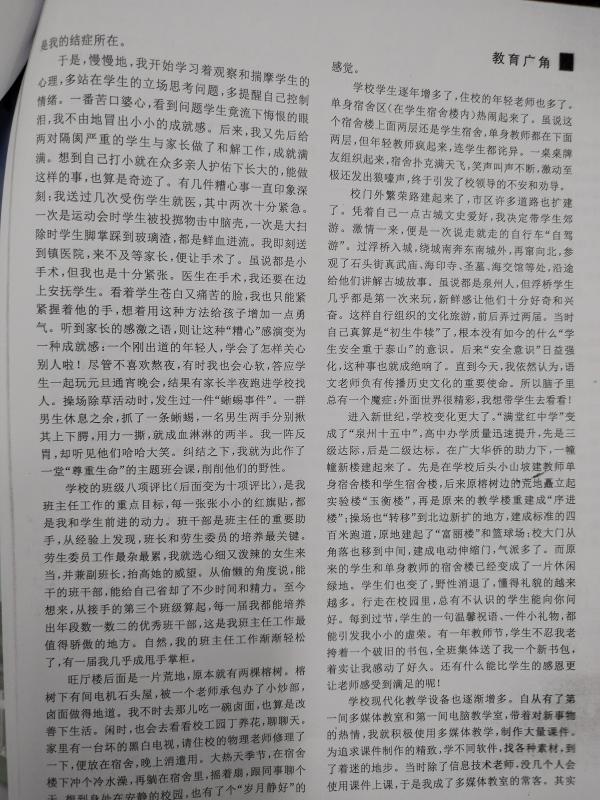 是我的结症所在。
于是，慢慢地，我开始学习着观察和揣摩学生的
心理，多站在学生的立场思考问题，多提醒自己控制
情绪。一番苦口婆心，看到问题学生竟流下悔恨的眼
泪，我不由地冒出小小的成就感。后来，我又先后给
两对隔阂严重的学生与家长做了和解工作，成就满
满。想到自己打小就在众多亲人护佑下长大的，能做
这样的事，也算是奇迹了。有几件糟心事一直印象深
刻：我送过几次受伤学生就医，其中两次十分紧急。
一次是运动会时学生被投掷物击中脑壳，一次是大扫
除时学生脚掌踩到玻璃渣，都是鲜血迸流。我即刻送
到镇医院，来不及等家长，便让手术了。虽说都是小
手术，但我也是十分紧张。医生在手术，我还要在边
上安抚学生。看着学生苍白又痛苦的脸，我也只能紧
紧握着他的手，想着用这种方法给孩子增加一点勇
气。听到家长的感激之语，则让这种“糟心”感演变为
一种成就感：一个刚出道的年轻人，学会了怎样关心
别人啦！尽管不喜欢熬夜，有时我也会心软，答应学
生一起玩元旦通宵晚会，结果有家长半夜跑进学校找
人。操场除草活动时，发生过一件“蜥蜴事件”。一群
男生休息之余，抓了一条蜥蜴，一名男生两手分别揪
其上下腭，用力一撕，就成血淋淋的两半。我一阵反
胃，却听见他们哈哈大笑。纠结之下，我就为此作了
一堂“尊重生命”的主题班会课，削削他们的野性。
学校的班级八项评比（后面变为十项评比），是我
班主任工作的重点目标，每一张张小小的红旗贴，都
是我和学生前进的动力。班干部是班主任的重要助
手，从经验上发现，班长和劳生委员的培养最关键。
劳生委员工作最杂最累，我就选心细又泼辣的女生来
当，并兼副班长，抬高她的威望。从偷懒的角度说，能
干的班干部，能给自己省却了不少时间和精力。至今
想来，从接手的第三个班级算起，每一届我都能培养
出年段数一数二的优秀班干部，这是我班主任工作最
值得骄傲的地方。自然，我的班主任工作渐渐轻松
了，有一届我几乎成甩手掌柜。
旺厅楼后面是一片荒地，原本就有两棵榕树。榕
树下有间电机石头屋，被一个老师承包办了小炒部，
卤面做得地道。我不时去那儿吃一碗卤面，也算是改
善下生活。闲时，也会去看看校工园丁养花，聊聊天。
家里有一台坏的黑白电视，请住校的物理老师修理了
一下，便放在宿舍，晚上消遣用。大热天季节，在宿舍
楼下冲个冷水澡，再躺在宿舍里，摇着扇，跟同事聊个
教育广角
感觉。
学校学生逐年增多了，住校的年轻老师也多了。
单身宿舍区（在学生宿舍楼内）热闹起来了。虽说这
个宿舍楼上面两层还是学生宿舍，单身教师都在下面
两层，但年轻教师疯起来，连学生都诧异。一桌桌牌
友组织起来，宿舍扑克满天飞，笑声叫声不断，激动至
极还发出狼嚎声，终于引发了校领导的不安和劝导。
校门外繁荣路建起来了，市区许多道路也扩建
了。凭着自己一点古城文史爱好，我决定带学生郊
游。激情一来，便是一次说走就走的自行车“自驾
游”。过浮桥入城，绕城南奔东南城外，再窜向北，参
观了石头街真武庙、海印寺、圣墓、海交馆等处，沿途
给他们讲解古城故事。虽说都是泉州人，但浮桥学生
几乎都是第一次来玩，新鲜感让他们十分好奇和兴
奋。这样自行组织的文化旅游，前后弄过两届。当时
自己真算是“初生牛犊”了，根本没有如今的什么“学
生安全重于泰山”的意识。后来“安全意识”日益强
化，这种事也就成绝响了。直到今天，我依然认为，语
文老师负有传播历史文化的重要使命。所以脑子里
总有一个魔症：外面世界很精彩，我想带学生去看看！
进入新世纪，学校变化更大了。“满堂红中学”变
成了“泉州十五中”，高中办学质量迅速提升，先是三
级达际，后是二级达标。在广大华侨的助力下，一幢
幢新楼建起来了。先是在学校后头小山坡建教师单
身宿舍楼和学生宿舍楼，后来原榕树边的荒地矗立起
实验楼“玉衡楼”，再是原来的教学楼重建成“序进
楼”；操场也“转移”到北边新扩的地方，建成标准的四
百米跑道，原地建起了“富丽楼”和篮球场；校大门从
角落也移到中间，建成电动伸缩门，气派多了。而原
来的学生和单身教师的宿舍楼已经变成了一片休闲
绿地。学生们也变了，野性消退了，懂得礼貌的越来
越多。行走在校园里，总有不认识的学生能向你问
好。每到过节，学生的一句温馨祝语、一件小礼物，都
能引发我小小的虚荣。有一年教师节，学生不忍我老
挎着一个破旧的书包，全班集体送了我一个新书包，
着实让我感动了好久。还有什么能比学生的感恩更
让老师感受到满足的呢！
学校现代化教学设备也逐渐增多。自从有了第
一间多媒体教室和第一间电脑教学室，带着对新事物
的热情，我就积极使用多媒体教学，制作大量课件。
为追求课件制作的精致，学不同软件，找各种素材，到
了着迷的地步。当时除了信息技术老师，没几个人会
使用课件上课，于是我成了多媒体教室的常客。其实